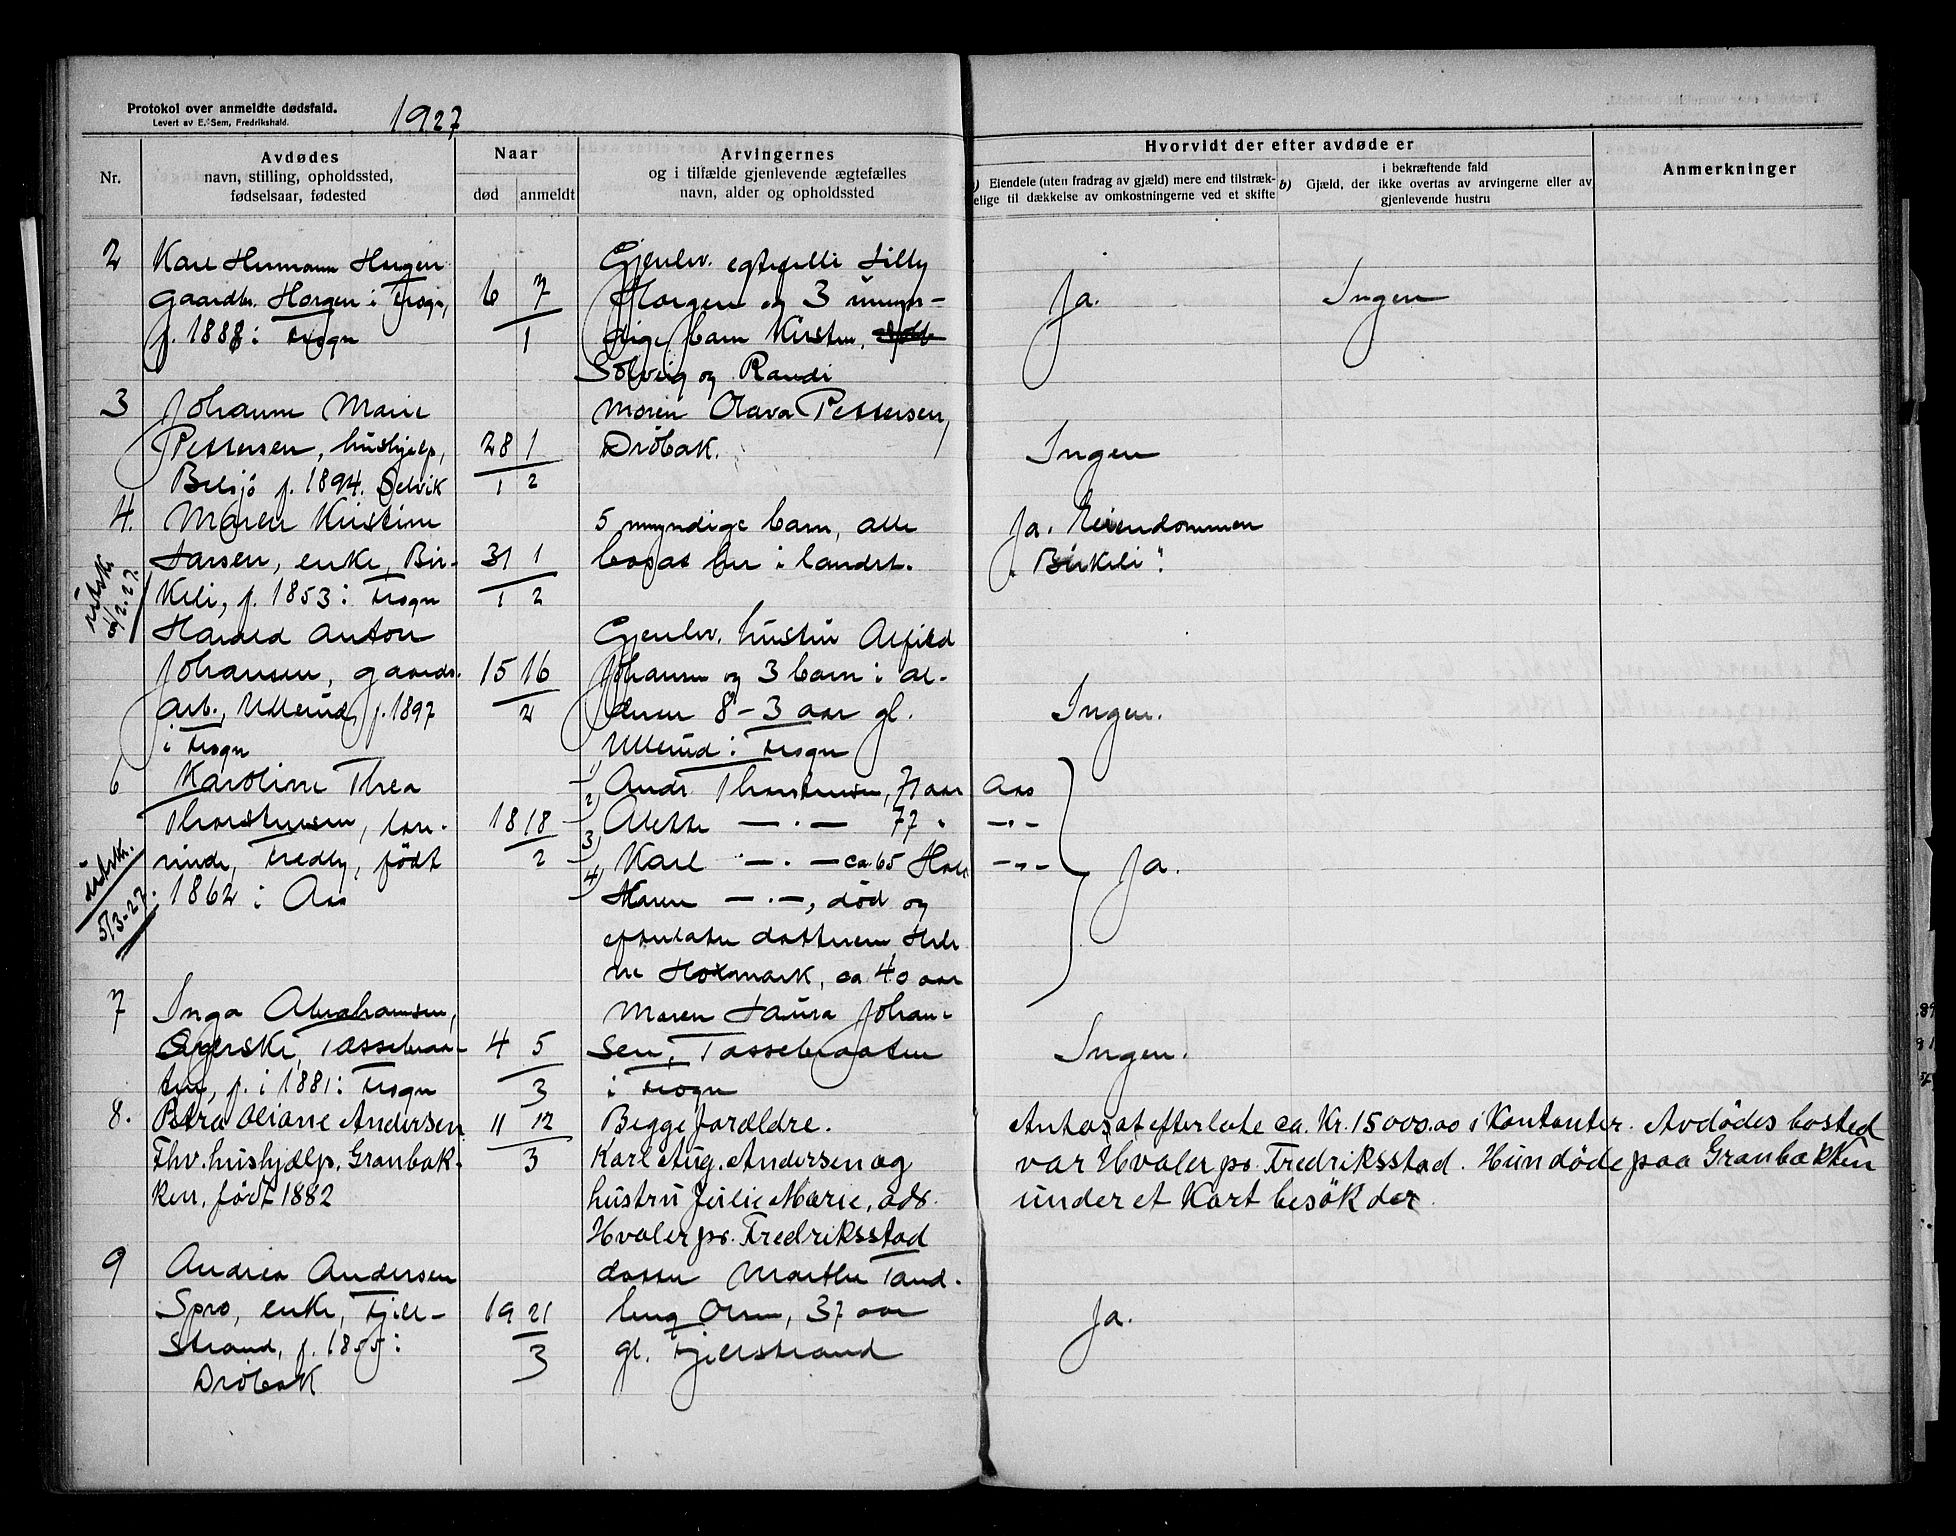 Protokol over anmeldte dødsfald.
Levert av E. Sem, Fredrikshald.
1927
Nr.
Avdødes
navn, stilling, opholdssted,
fødselsaar, fødested
Naar
død
anmeldt
Arvingernes
og i tilfælde gjenlevende ægtefælles
navn, alder og opholdssted
Hvorvidt der efter avdøde er
a) Eiendele (uten fradrag av gjæld) mere end tilstræk-
kelige til dækkelse av omkostningerne ved et skifte
b) i bekræftende fald
Gjæld, der ikke overtas av arvingerne eller av
gjenlevende hustru
Anmerkninger
2
Karl Hermann Horgen
gaardbr. Horgen i Frogn,
f. 1888 i Frogn
6 7
1
Gjenlev. egtefelle Lilly
Horgen og 3 umyn-
dige barn Kirsten,
Solveig og Randi
Ja.
Ingen
3
Johanne Marie
Pettersen, hushjelp,
Belsjö f. 1894. Selvik
28 1
1 2
Moren Olava Pettersen,
Dröbak.
Ingen
4.
Maren Kristine
Larsen, enke, Bir-
keli, f. 1853 i Frogn
31 1
1 2
5 myndige barn, alle
bosat her i landet.
Ja. Eiendommen
"Birkeli".
utsk.
/2.27.
Harald Anton
Johansen, gaards-
arb., Ullerud, f. 1897
i Frogn
15 16
2
Gjenlev. hustru Alfild
Johansen og 3 barn i al-
deren 8-3 aar gl.
Ullerud i Frogn
Ingen.
6
Karoline Thea
Thorstensen, lære-
rinde, Fredly, født
1862 i Aas
18 18
2
1) Andr. Thorstensen, 71 aar Aas
2) Alette — . — 77 " — " —
3) Karl — . — ca 65 — " —
4) Maren — . —, død og
efterlater datteren Hele
ne Holmark, ca. 40 aar
Ja.
utsk.
5/3-27.
7
Inga Abrahamsen,
Tassebraa-
ten, f. i 1881 i Frogn
4 5
3
Moren Laura Johan-
sen, Tassebraaten
i Frogn
Ingen.
8.
Petra Oliane Andersen
Fhv. hushjælp. Granbak-
ken, født 1882
11 12
3
Begge forældre.
Karl Aug. Andersen og
hustru Julie Marie, adr.
Hvaler pr. Fredriksstad
Antas at efterlate ca. Kr. 15000.00 i Kontanter. Avdødes bosted
var Hvaler pr. Fredriksstad. Hun døde paa Granbakken
under et Kort besök der.
9
Andrea Andersen
Spro, enke, Fjell-
strand, f. 1855 i
Dröbak
19 21
3
datter Marthe Tand-
berg Olsen, 37 aar
gl. Fjellstrand
Ja.